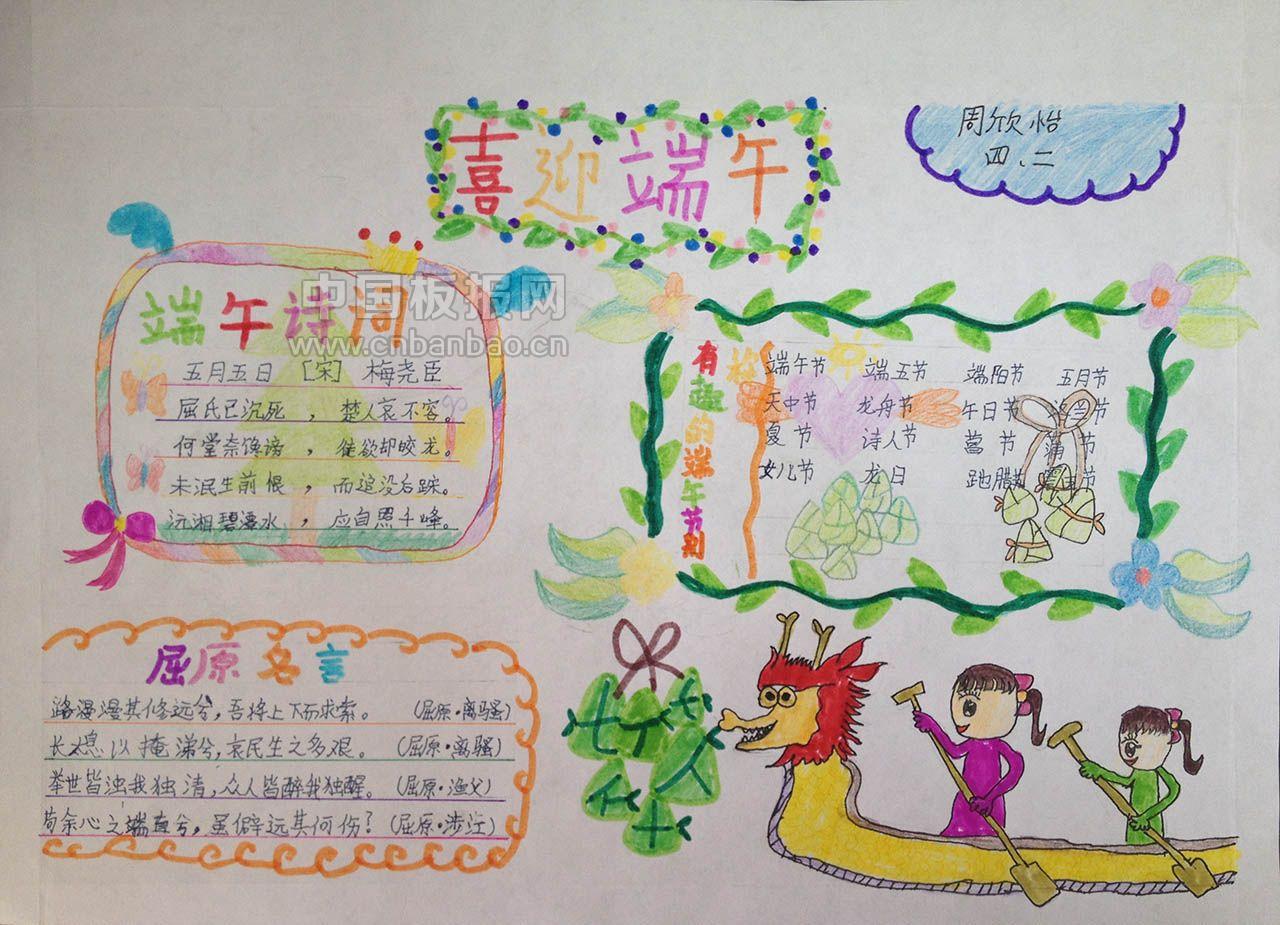 喜迎端午
周欣怡
四、二
中国板报网
www.cnbanbao.cn
端午诗周
五月五日 [宋] 梅尧臣
屈氏已沉死，楚人哀不容。
何尝奈谗谤，徒欲却蛟龙。
未泯生前恨，而追没后踪。
沅湘碧潭水，应自照千峰。
有趣的端午节别称
端午节 端五节 端阳节 五月节
天中节 龙舟节 午日节 浴兰节
夏节 诗人节 菖节 蒲节
女儿节 龙日 地腊
屈原名言
路漫漫其修远兮，吾将上下而求索。 (屈原·离骚)
长太息以掩涕兮，哀民生之多艰。 (屈原·离骚)
举世皆浊我独清，众人皆醉我独醒。 (屈原·渔父)
苟余心之端直兮，虽僻远其何伤？ (屈原·涉江)